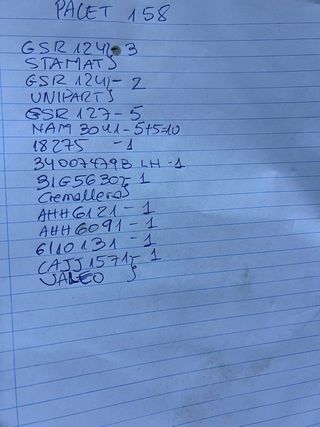 PACET 158
GSR 124}- 3
STAMAT}
GSR 124}- 2
UNIPART}
GSR 127-5
NAM 3041-5+5=10
18275 -1
34007479B LH -1
31G5630}-1
Cremallera}
AHH6121-1
AHH6091-1
6110131-1
CAJJ1571}-1
VALEO }